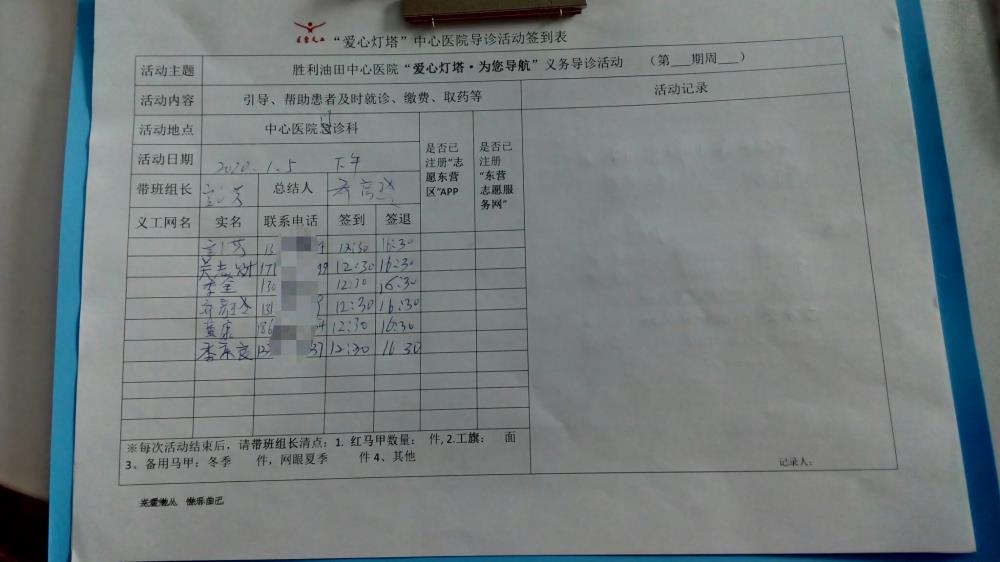 “爱心灯塔”中心医院导诊活动签到表
活动主题 胜利油田中心医院“爱心灯塔·为您导航”义务导诊活动 （第___期周___）
活动内容 引导、帮助患者及时就诊、缴费、取药等 活动记录
活动地点 中心医院门诊科 是否已注册“志愿东营区”APP 是否已注册“东营志愿服务网”
活动日期 2020.1.5 下午
带班组长 总结人
义工网名 实名 联系电话 签到 签退
12:30 16:30
171 99 12:30 16:30
李全 130 12:30 16:30
181 12:30 16:30
康 186 12:30 16:30
37 12:30 16 30
※每次活动结束后，请带班组长清点：1. 红马甲数量： 件, 2.工旗： 面
3、备用马甲：冬季 件，网眼夏季 件 4、其他
记录人：